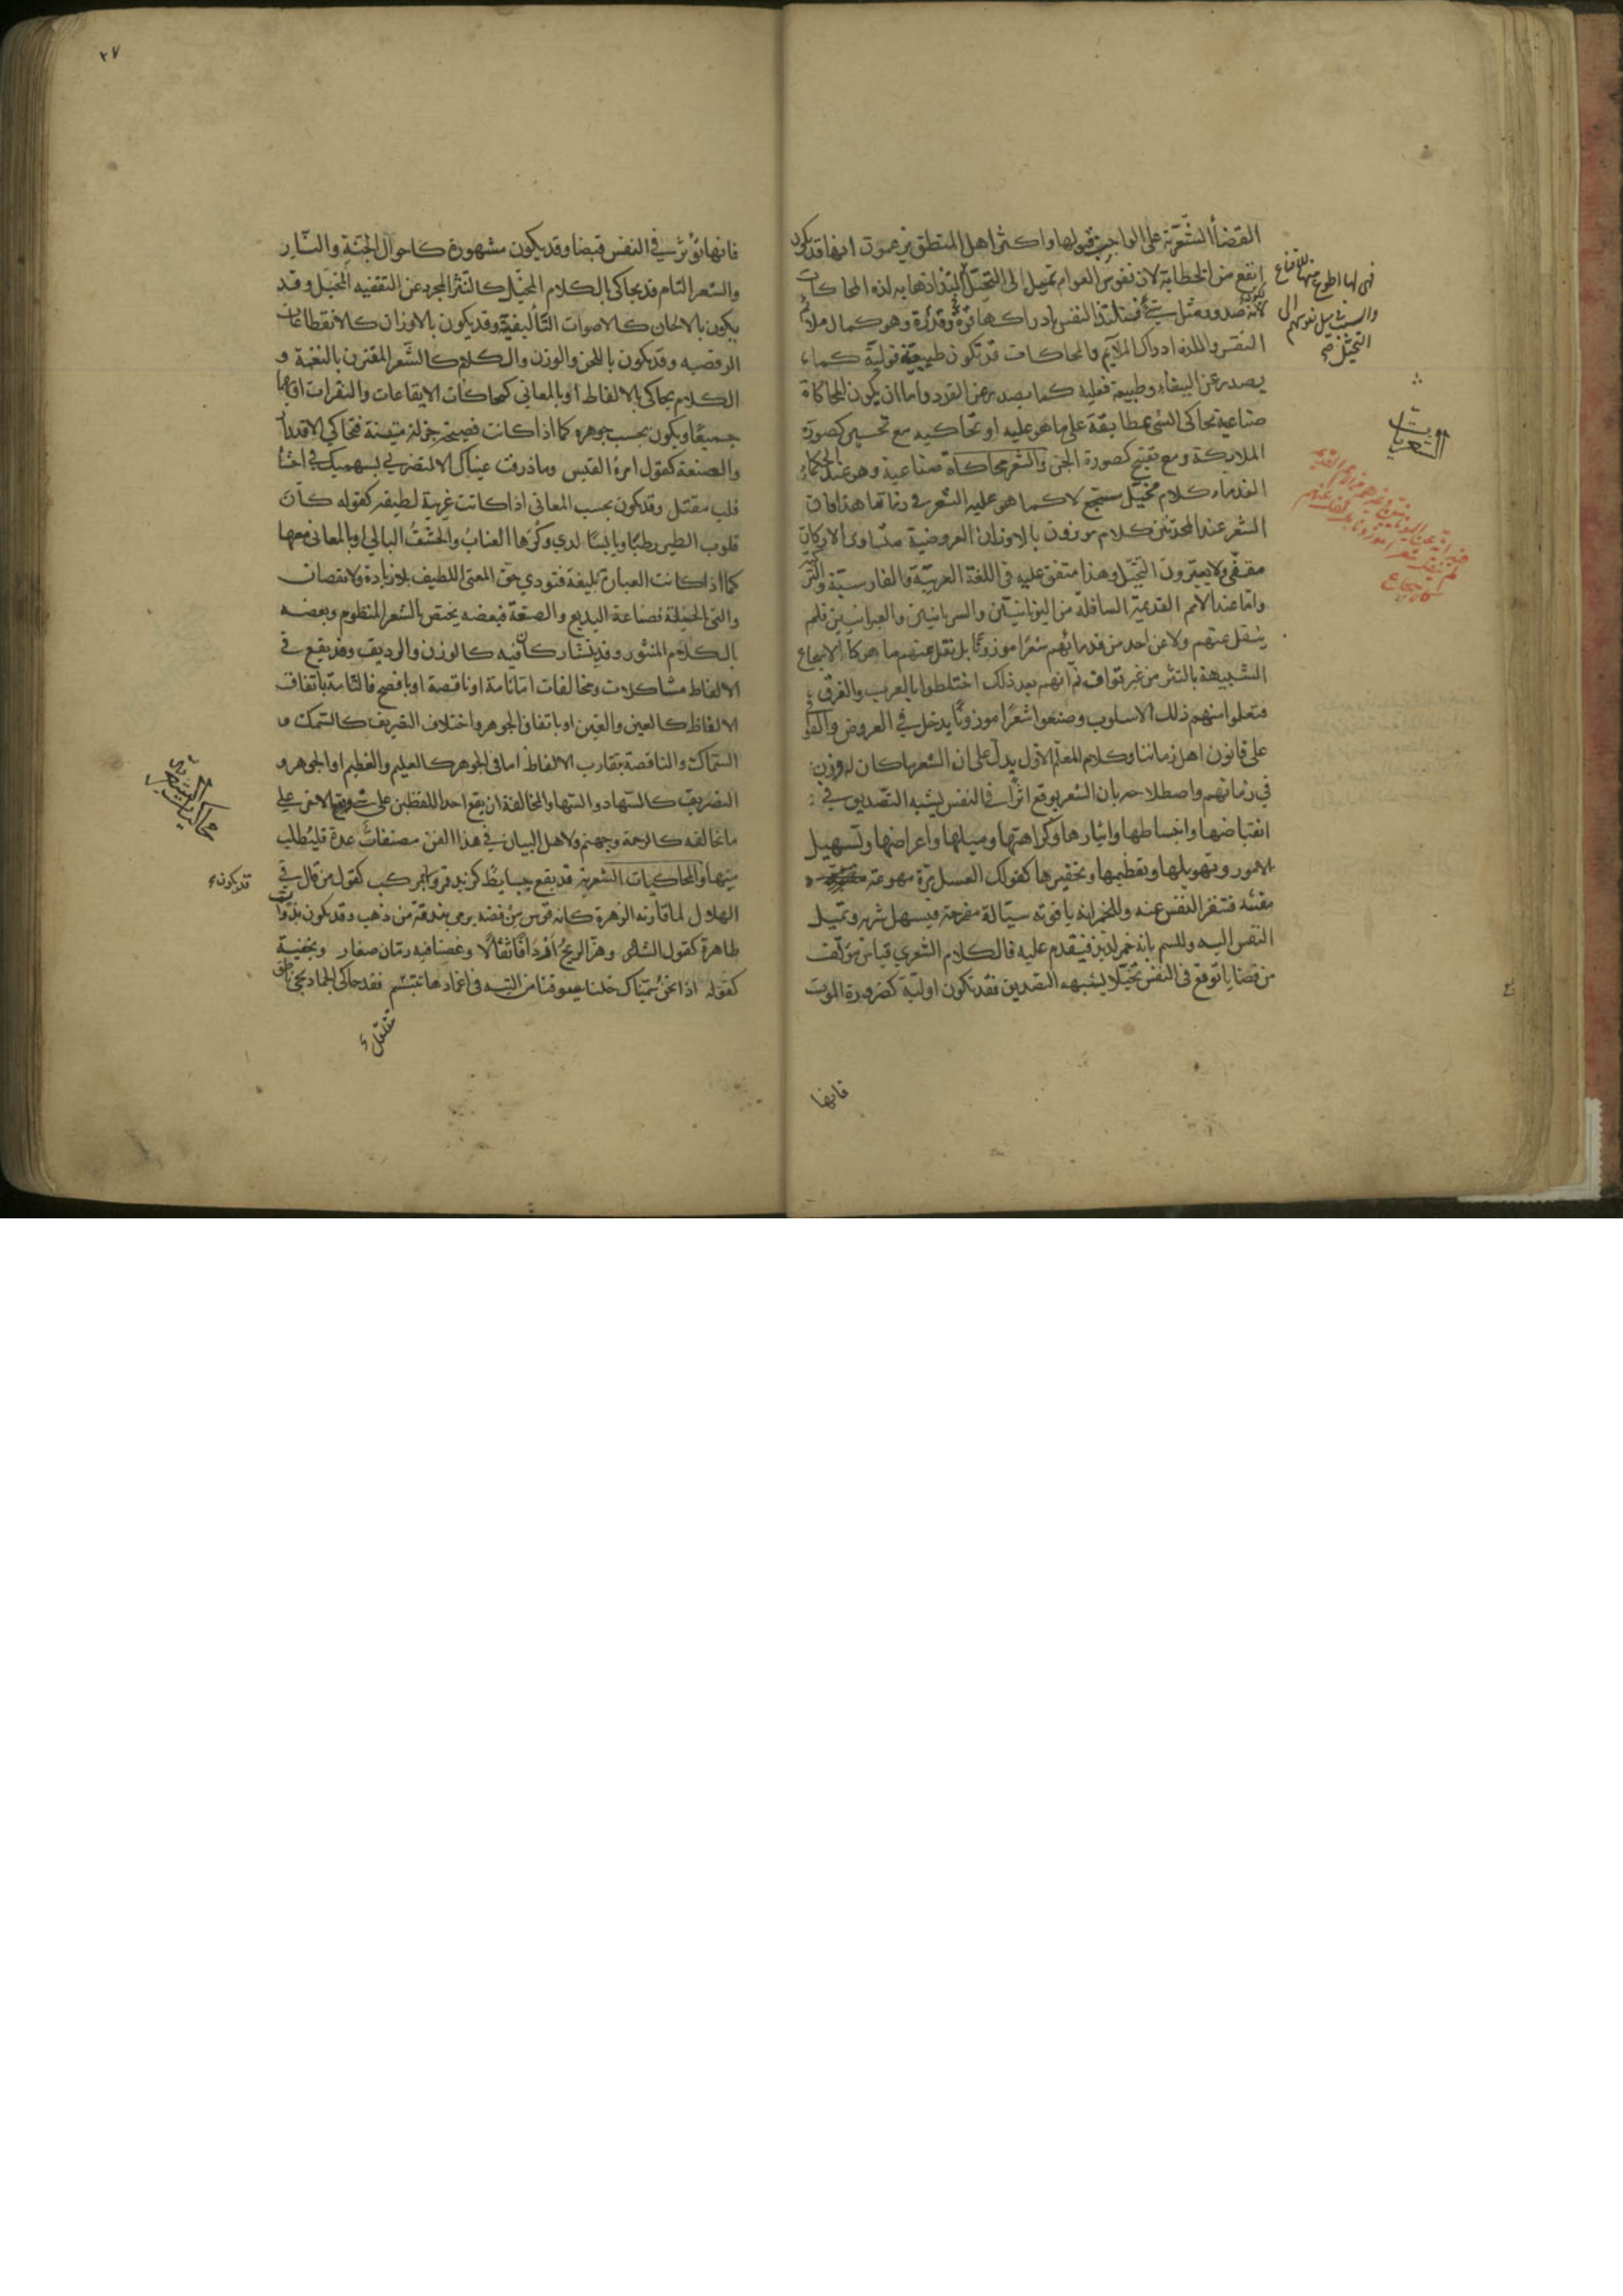 القضايا الشعرية على الواجب قبولها واكثر اهل المنطق يزعمون انها قد يكون
انفع من الخطابة لان نفوس العوام تميل الى التخيل لالتذاذها به لذة المحاكات
النفس واللذة ادراك الملايم والمحاكات قد تكون طبيعية قولية كما
يصدر عن الببغاء وطبيعة فعلية كما يصدر عن القرد واما ان يكون المحاكاة
صناعية تحاكى الشى بمطابقة على ما هو عليه او تحاكيه مع تحسين كصورة
الملايكة ومع تقبيح كصورة الجن والشعر محاكاة صناعية وهو عند الحكماء
القدماء كلام مخيل لا كما هو عليه الشعر فى زماننا هذا فان
الشعر عند المحدثين كلام موزون بالاوزان العروضية متساوى الاركان
مقفى ولا يعتبرون التخيل وهذا متفق عليه فى اللغة العربية والفارسية والتركية
واما عند الامم القديمة السالفة من اليونانيين والسريانيين والعبرانيين فلم
ينقل عنهم ولا عن احد من قدمائهم شعرا موزونا بل نقل عنهم ما هو كالاسجاع
الشبيهة بالنثر من غير قواف ثم انهم بعد ذلك اختلطوا بالعرب والفرس
فتعلوا منهم ذلك الاسلوب وصنعوا شعرا موزونا يدخل فى العروض والقوافى
على قانون اهل زماننا وكلام المعلم الاول يدل على ان الشعر ما كان له وزن
فى زمانهم واصطلاحه بان الشعر يوقع اثرا فى النفس يشبه التصديق فى
انقباضها وانبساطها وايثارها وكراهتها وميلها واعراضها وتسهيل
الامور وتهويلها وتعظيمها وتحقيرها كقولك العسل مرة مهوعة
مقيئة فتنفر النفس عنه وللخمر انه ياقوته سيالة مفرحة فيسهل شربه وتميل
النفس اليه وللسم بانه خمر لذيذ فيقدم عليه فالكلام الشعري قياس مؤلف
من قضايا توقع فى النفس تخيلا يشبه التصديق فقد تكون اولية كضرورة الموت
فانها
الشعريات
فهى لها اطوع منها للاقناع
والسبب ميل نفوسهم الى
التخيل صح
٢٧
فانها تؤثر فى النفس قبضا وقد يكون مشهورة كاحوال الجنة والنار
والشعر التام قد يحاكى بالكلام المخيل كالنثر المجرد عن التقفيه المخيل وقد
يكون بالالحان كالاصوات التأليفية وقد يكون بالاوزان كالانقطاعات
الرقصيه وقد يكون باللحن والوزن والكلام كالشعر المقترن بالنغمة و
الكلام يحاكى بالالفاظ او بالمعانى كمحاكات الايقاعات والنقرات او بهما
جميعا ويكون بحسب جوهره كما اذا كانت فصيحة جزلة متينة فتحاكى الاقتدار
والصنعة كقول امرؤ القيس وما ذرفت عيناك الا لتضربى بسهميك فى اعشار
قلب مقتل وقد يكون بحسب المعانى اذا كانت غريبة لطيفة كقوله كأن
قلوب الطير رطبا ويابسا لدى وكرها العناب والحشف البالى او بالمعانى معها
كما اذا كانت العبارة بليغة فتودي حق المعنى اللطيف بلا زيادة ولا نقصان
والتى بالحيلة فصناعة البديع والصنعة فبعضه يختص بالشعر المنظوم وبعضه
بالكلام المنثور وقد يتشاركان فيه كالوزن والرديف وقد يقع فى
الالفاظ مشاكلات ومخالفات اما تامة او ناقصة فالتامة باتفاق
الالفاظ كالعين والعين او باتفاق الجوهر واختلاف التصريف كالسمك و
السماك والناقصة بتقارب الالفاظ اما فى الجوهر كالعليم والعظيم او الجوهر و
التصريف كالسهاد والسها والمخالفة ان يقع احد اللفظين على شى والاخر على
ما يخالفه كالرحمة وجهنم ولاهل البيان فى هذا الفن مصنفات عدة فليطلب
منها والمحاكيات الشعرية قد يقع بسايط كزيد قمر واما مركب كقول من قال فى
الهلال لما قارنه الزهرة كانه قوس من فضه يرمى بندقة من ذهب وقد يكون بذوات
ظاهرة كقول الشاعر وهز الريح اردافا ثقالا وغصنا فيه رمان صغار وبخفية
كقوله اذا نحن سميناك خلنا سيوفنا من التيه فى اغمادها تتبسم فقد حاكى الجماد بحى ناطق
محاكيات الشعرية
قد يكون